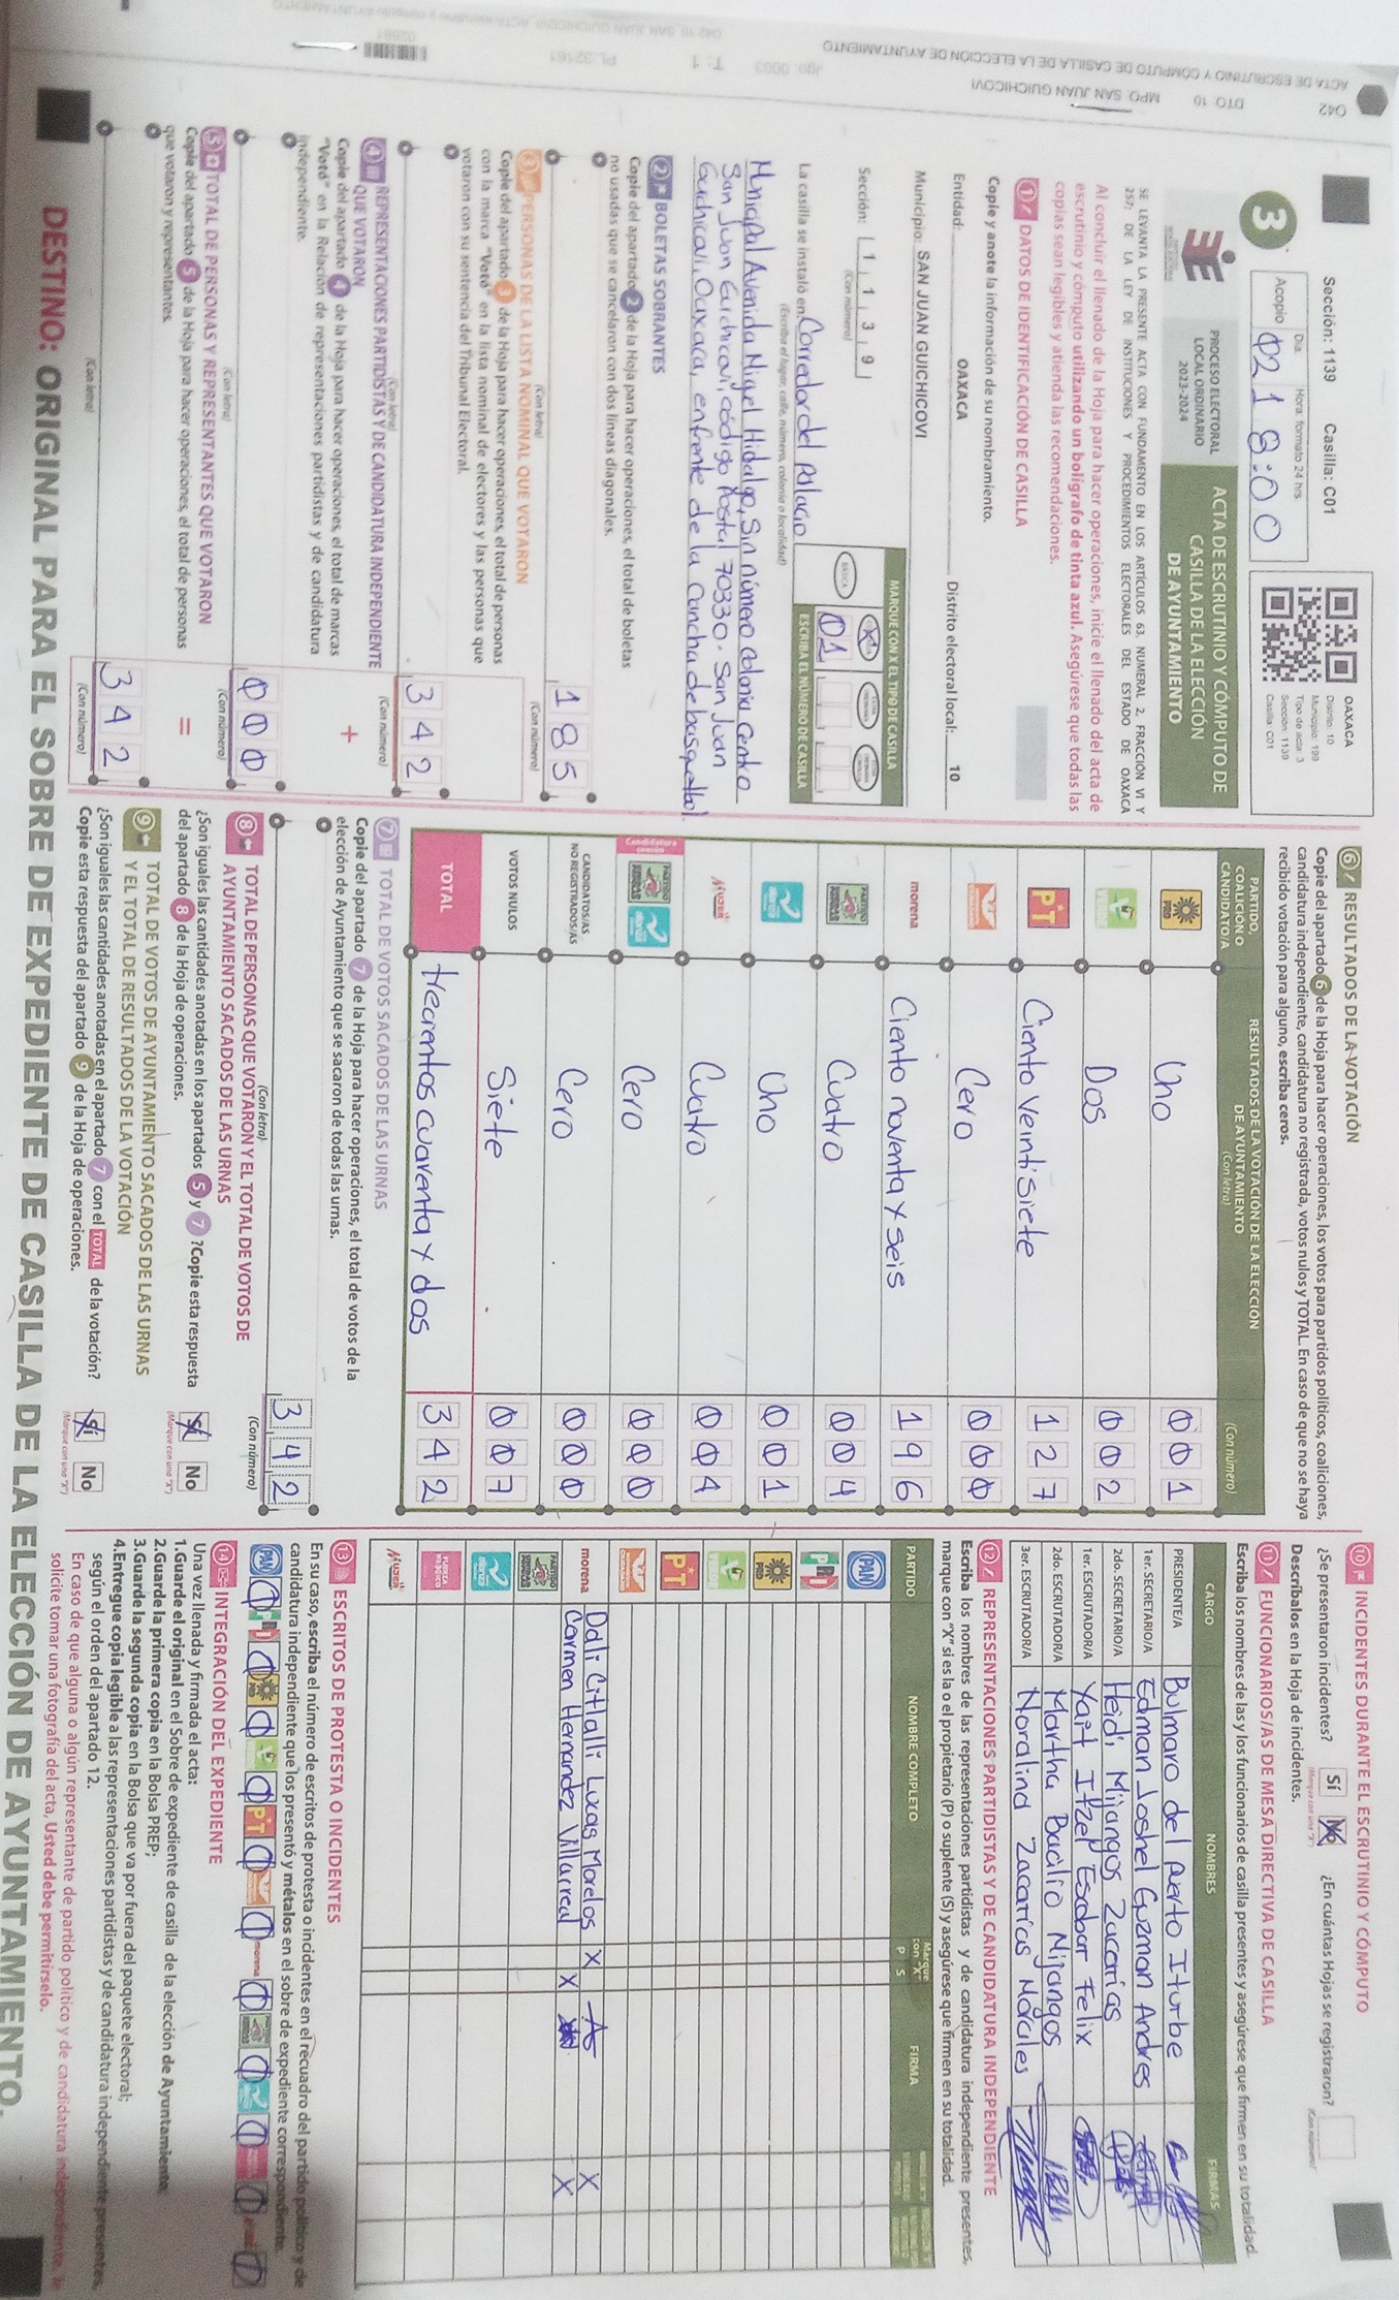 Sección: 1139 Casilla: C01
3
Acopio
Día Hora: formato 24 hrs
02 18:00
OAXACA
Distrito: 10
Municipio: 199
Tipo de acta: 3
Sección: 1139
Casilla: C01
PROCESO ELECTORAL
LOCAL ORDINARIO
2023-2024
ACTA DE ESCRUTINIO Y CÓMPUTO DE
CASILLA DE LA ELECCIÓN
DE AYUNTAMIENTO
SE LEVANTA LA PRESENTE ACTA CON FUNDAMENTO EN LOS ARTÍCULOS 63, NUMERAL 2, FRACCIÓN VI Y
257; DE LA LEY DE INSTITUCIONES Y PROCEDIMIENTOS ELECTORALES DEL ESTADO DE OAXACA
Al concluir el llenado de la Hoja para hacer operaciones, inicie el llenado del acta de
escrutinio y cómputo utilizando un bolígrafo de tinta azul. Asegúrese que todas las
copias sean legibles y atienda las recomendaciones.
1 DATOS DE IDENTIFICACIÓN DE CASILLA
Copie y anote la información de su nombramiento.
Entidad: OAXACA Distrito electoral local: 10
Municipio: SAN JUAN GUICHICOVI
Sección: 1 1 3 9
(Con número)
MARQUE CON X EL TIPO DE CASILLA
BÁSICA
ESCRIBA EL NÚMERO DE CASILLA
01
La casilla se instaló en: Corredor del Palacio
(Escriba el lugar, calle, número, colonia o localidad)
Municipal Avenida Miguel Hidalgo, Sin número colonia Centro
San Juan Guichicovi código Postal 70330. San Juan
Guichicovi, Oaxaca, enfrente de la Cancha de basquetbol.
2 BOLETAS SOBRANTES
Copie del apartado 2 de la Hoja para hacer operaciones, el total de boletas
no usadas que se cancelaron con dos líneas diagonales.
185
(Con letra) (Con número)
3 PERSONAS DE LA LISTA NOMINAL QUE VOTARON
Copie del apartado 3 de la Hoja para hacer operaciones, el total de personas
con la marca "Votó" en la lista nominal de electores y las personas que
votaron con su sentencia del Tribunal Electoral.
342
(Con letra) (Con número)
4 REPRESENTACIONES PARTIDISTAS Y DE CANDIDATURA INDEPENDIENTE
QUE VOTARON
Copie del apartado 4 de la Hoja para hacer operaciones, el total de marcas
"Votó" en la Relación de representaciones partidistas y de candidatura
independiente.
+
000
(Con letra) (Con número)
5 TOTAL DE PERSONAS Y REPRESENTANTES QUE VOTARON
Copie del apartado 5 de la Hoja para hacer operaciones, el total de personas
que votaron y representantes.
=
342
(Con letra) (Con número)
6 RESULTADOS DE LA VOTACIÓN
Copie del apartado 6 de la Hoja para hacer operaciones, los votos para partidos políticos, coaliciones,
candidatura independiente, candidatura no registrada, votos nulos y TOTAL. En caso de que no se haya
recibido votación para alguno, escriba ceros.
PARTIDO, COALICION O CANDIDATO/A
RESULTADOS DE LA VOTACIÓN DE LA ELECCIÓN DE AYUNTAMIENTO
(Con letra) (Con número)
PRD Uno 001
Dos 002
PT Ciento veintisiete 127
Cero 000
morena Ciento noventa y seis 196
Cuatro 004
Uno 001
Cuatro 004
Cero 000
CANDIDATOS/AS NO REGISTRADOS/AS Cero 000
VOTOS NULOS Siete 007
TOTAL Trecientos cuarenta y dos 342
7 TOTAL DE VOTOS SACADOS DE LAS URNAS
Copie del apartado 7 de la Hoja para hacer operaciones, el total de votos de la
elección de Ayuntamiento que se sacaron de todas las urnas.
342
(Con letra) (Con número)
8 TOTAL DE PERSONAS QUE VOTARON Y EL TOTAL DE VOTOS DE
AYUNTAMIENTO SACADOS DE LAS URNAS
¿Son iguales las cantidades anotadas en los apartados 5 y 7 ?Copie esta respuesta
del apartado 8 de la Hoja de operaciones.
Sí No
(Marque con una "X")
9 TOTAL DE VOTOS DE AYUNTAMIENTO SACADOS DE LAS URNAS
Y EL TOTAL DE RESULTADOS DE LA VOTACIÓN
¿Son iguales las cantidades anotadas en el apartado 7 con el TOTAL de la votación?
Copie esta respuesta del apartado 9 de la Hoja de operaciones.
Sí No
(Marque con una "X")
10 INCIDENTES DURANTE EL ESCRUTINIO Y CÓMPUTO
¿Se presentaron incidentes? Sí No ¿En cuántas Hojas se registraron?
Descríbalos en la Hoja de incidentes.
11 FUNCIONARIOS/AS DE MESA DIRECTIVA DE CASILLA
Escriba los nombres de las y los funcionarios de casilla presentes y asegúrese que firmen en su totalidad.
CARGO NOMBRES FIRMAS
PRESIDENTE/A Bulmaro del puerto Iturbe
1er. SECRETARIO/A Edman Joshel Guzman Andres
2do. SECRETARIO/A Heidi Mijangos Zacarias
1er. ESCRUTADOR/A Yait Itzel Escobar Felix
2do. ESCRUTADOR/A Martha Bacilio Mijangos
3er. ESCRUTADOR/A Noralind Zacarias Morales
12 REPRESENTACIONES PARTIDISTAS Y DE CANDIDATURA INDEPENDIENTE
Escriba los nombres de las representaciones partidistas y de candidatura independiente presentes,
marque con "X" si es la o el propietario (P) o suplente (S) y asegúrese que firmen en su totalidad.
PARTIDO NOMBRE COMPLETO Marque con "X" P S FIRMA
PAN
PRI
PRD
PT
morena Dali Citlalli Lucas Morelos X X
Carmen Hernandez Villarreal X X
13 ESCRITOS DE PROTESTA O INCIDENTES
En su caso, escriba el número de escritos de protesta o incidentes en el recuadro del partido político y de
candidatura independiente que los presentó y métalos en el sobre de expediente correspondiente.
14 INTEGRACIÓN DEL EXPEDIENTE
Una vez llenada y firmada el acta:
1.Guarde el original en el Sobre de expediente de casilla de la elección de Ayuntamiento;
2.Guarde la primera copia en la Bolsa PREP;
3.Guarde la segunda copia en la Bolsa que va por fuera del paquete electoral;
4.Entregue copia legible a las representaciones partidistas y de candidatura independiente presentes,
según el orden del apartado 12.
En caso de que alguna o algún representante de partido político y de candidatura independiente, le
solicite tomar una fotografía del acta, Usted debe permitírselo.
DESTINO: ORIGINAL PARA EL SOBRE DE EXPEDIENTE DE CASILLA DE LA ELECCIÓN DE AYUNTAMIENTO.
042 DTO. 10 MPO. SAN JUAN GUICHICOVI
ACTA DE ESCRUTINIO Y COMPUTO DE CASILLA DE LA ELECCION DE AYUNTAMIENTO